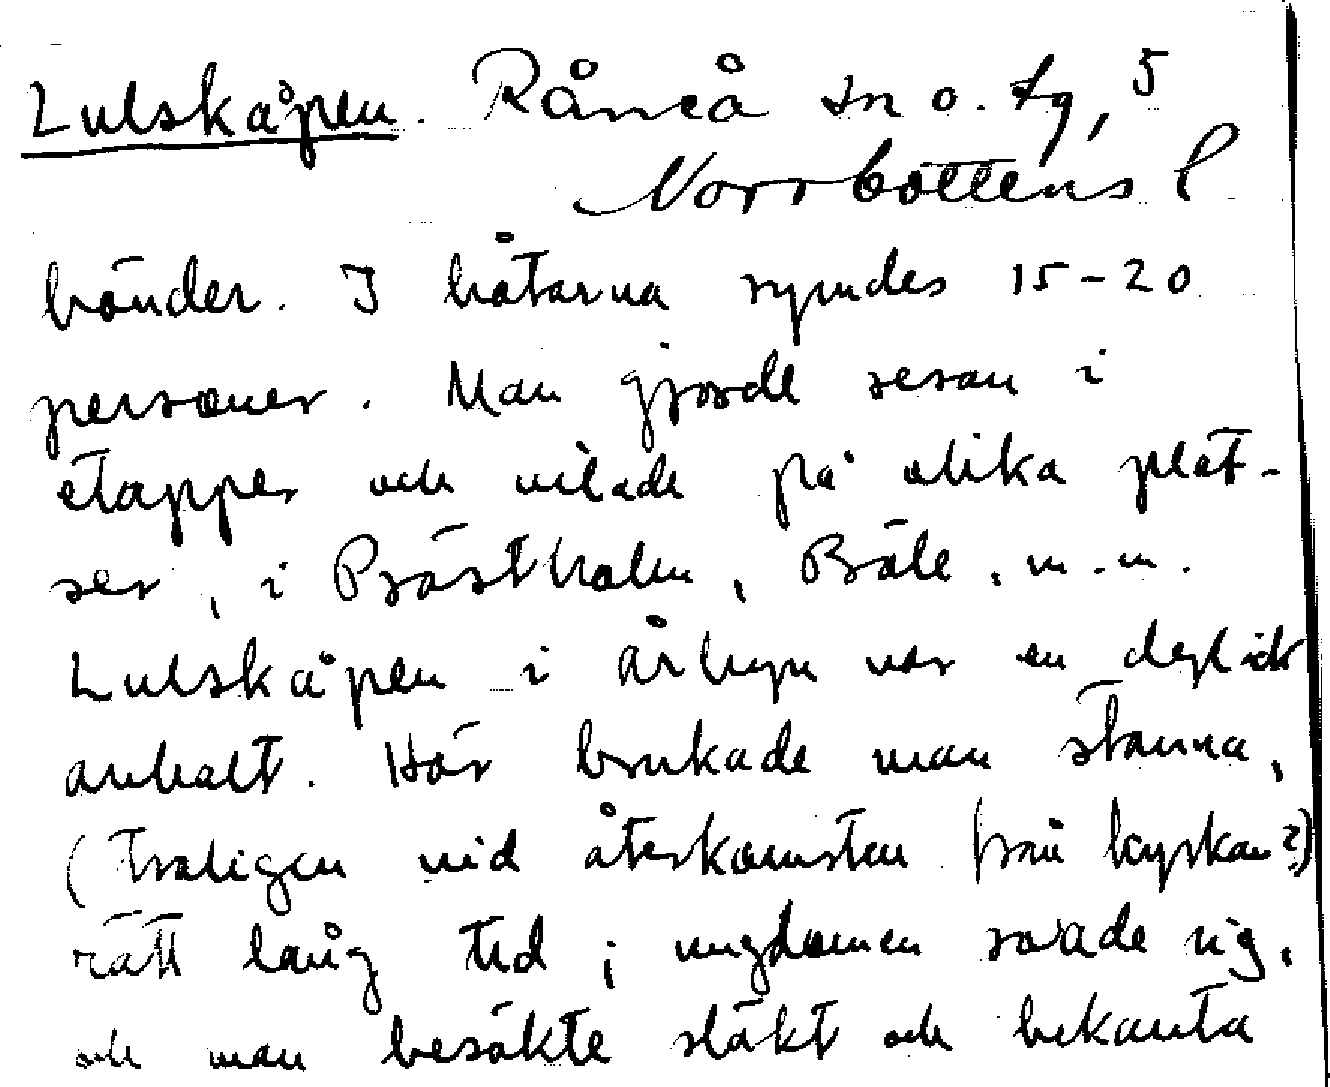 Lulskåpen. Råneå sn o. tg, 5
Norrbottens l
bönder. I båtarna rymdes 15-20
personer. Man gjorde resan i
etapper och vilade på olika plat-
ser, i Prästholm, Böle, m.m.
Lulskåpen i Årbyn var en dylik
anhalt. Här brukade man stanna,
(troligen vid återkomsten från kyrkan?)
rätt lång tid; ungdomen roade sig,
och man besökte släkt och bekanta